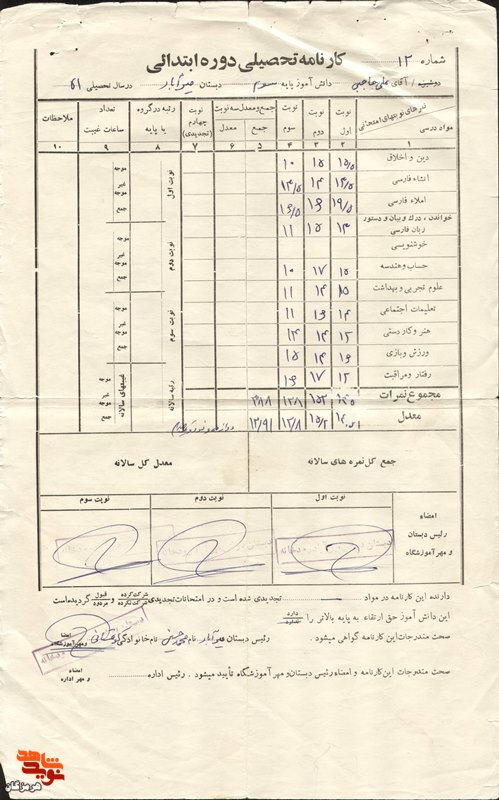 کارنامه تحصیلی دوره ابتدائی
شماره ۱۲
دوشیزه / آقای علی حاجبی دانش آموز پایه سوم دبستان در سال تحصیلی ۶۱
نمرهای نوبتهای امتحانی
مواد درسی
نوبت اول
نوبت دوم
نوبت سوم
جمع و معدل سه نوبت
جمع
معدل
نوبت چهارم (تجدیدی)
رتبه در گروه یا پایه
تعداد ساعات غیبت
ملاحظات
۱ ۲ ۳ ۴ ۵ ۶ ۷ ۸ ۹ ۱۰
دین و اخلاق ۱۵/۵ ۱۵ ۱۰
انشاء فارسی ۱۴/۵ ۱۴ ۱۴/۵
املاء فارسی ۱۹/۵ ۱۶ ۱۶/۵
خواندن ، درک و بیان و دستور زبان فارسی ۱۳ ۱۵ ۱۱
خوشنویسی
حساب و هندسه ۱۵ ۱۷ ۱۰
علوم تجربی و بهداشت ۱۵ ۱۴ ۱۱
تعلیمات اجتماعی ۱۴ ۱۶ ۱۱
هنر و کاردستی ۱۲ ۱۴ ۱۴
ورزش و بازی ۱۶ ۱۴ ۱۵
رفتار و مراقبت ۱۲ ۱۷ ۱۶
مجموع نمرات ۱۵۲ ۱۲۸
معدل ۱۵/۲ ۱۲/۸
نوبت اول
نوبت دوم
نوبت سوم
رتبه سالانه
موجه
غیر موجه
جمع
موجه
غیر موجه
جمع
موجه
غیر موجه
جمع
غیبتهای سالانه
موجه
غیر موجه
جمع
جمع کل نمره های سالانه
معدل کل سالانه
امضاء
رئیس دبستان
و مهر آموزشگاه
نوبت اول
نوبت دوم
نوبت سوم
دارنده این کارنامه در مواد — تجدیدی شده است و در امتحانات تجدیدی شرکت کرده شرکت نکرده و قبول مردود گردیده است
این دانش آموز حق ارتقاء به پایه بالاتر را دارد ندارد
صحت مندرجات این کارنامه گواهی میشود . رئیس دبستان نام نام خانوادگی امضاء و مهر آموزشگاه
صحت مندرجات این کارنامه و امضاء رئیس دبستان و مهر آموزشگاه تأیید میشود . رئیس اداره امضاء و مهر اداره
نوید شاهد
هرمزگان